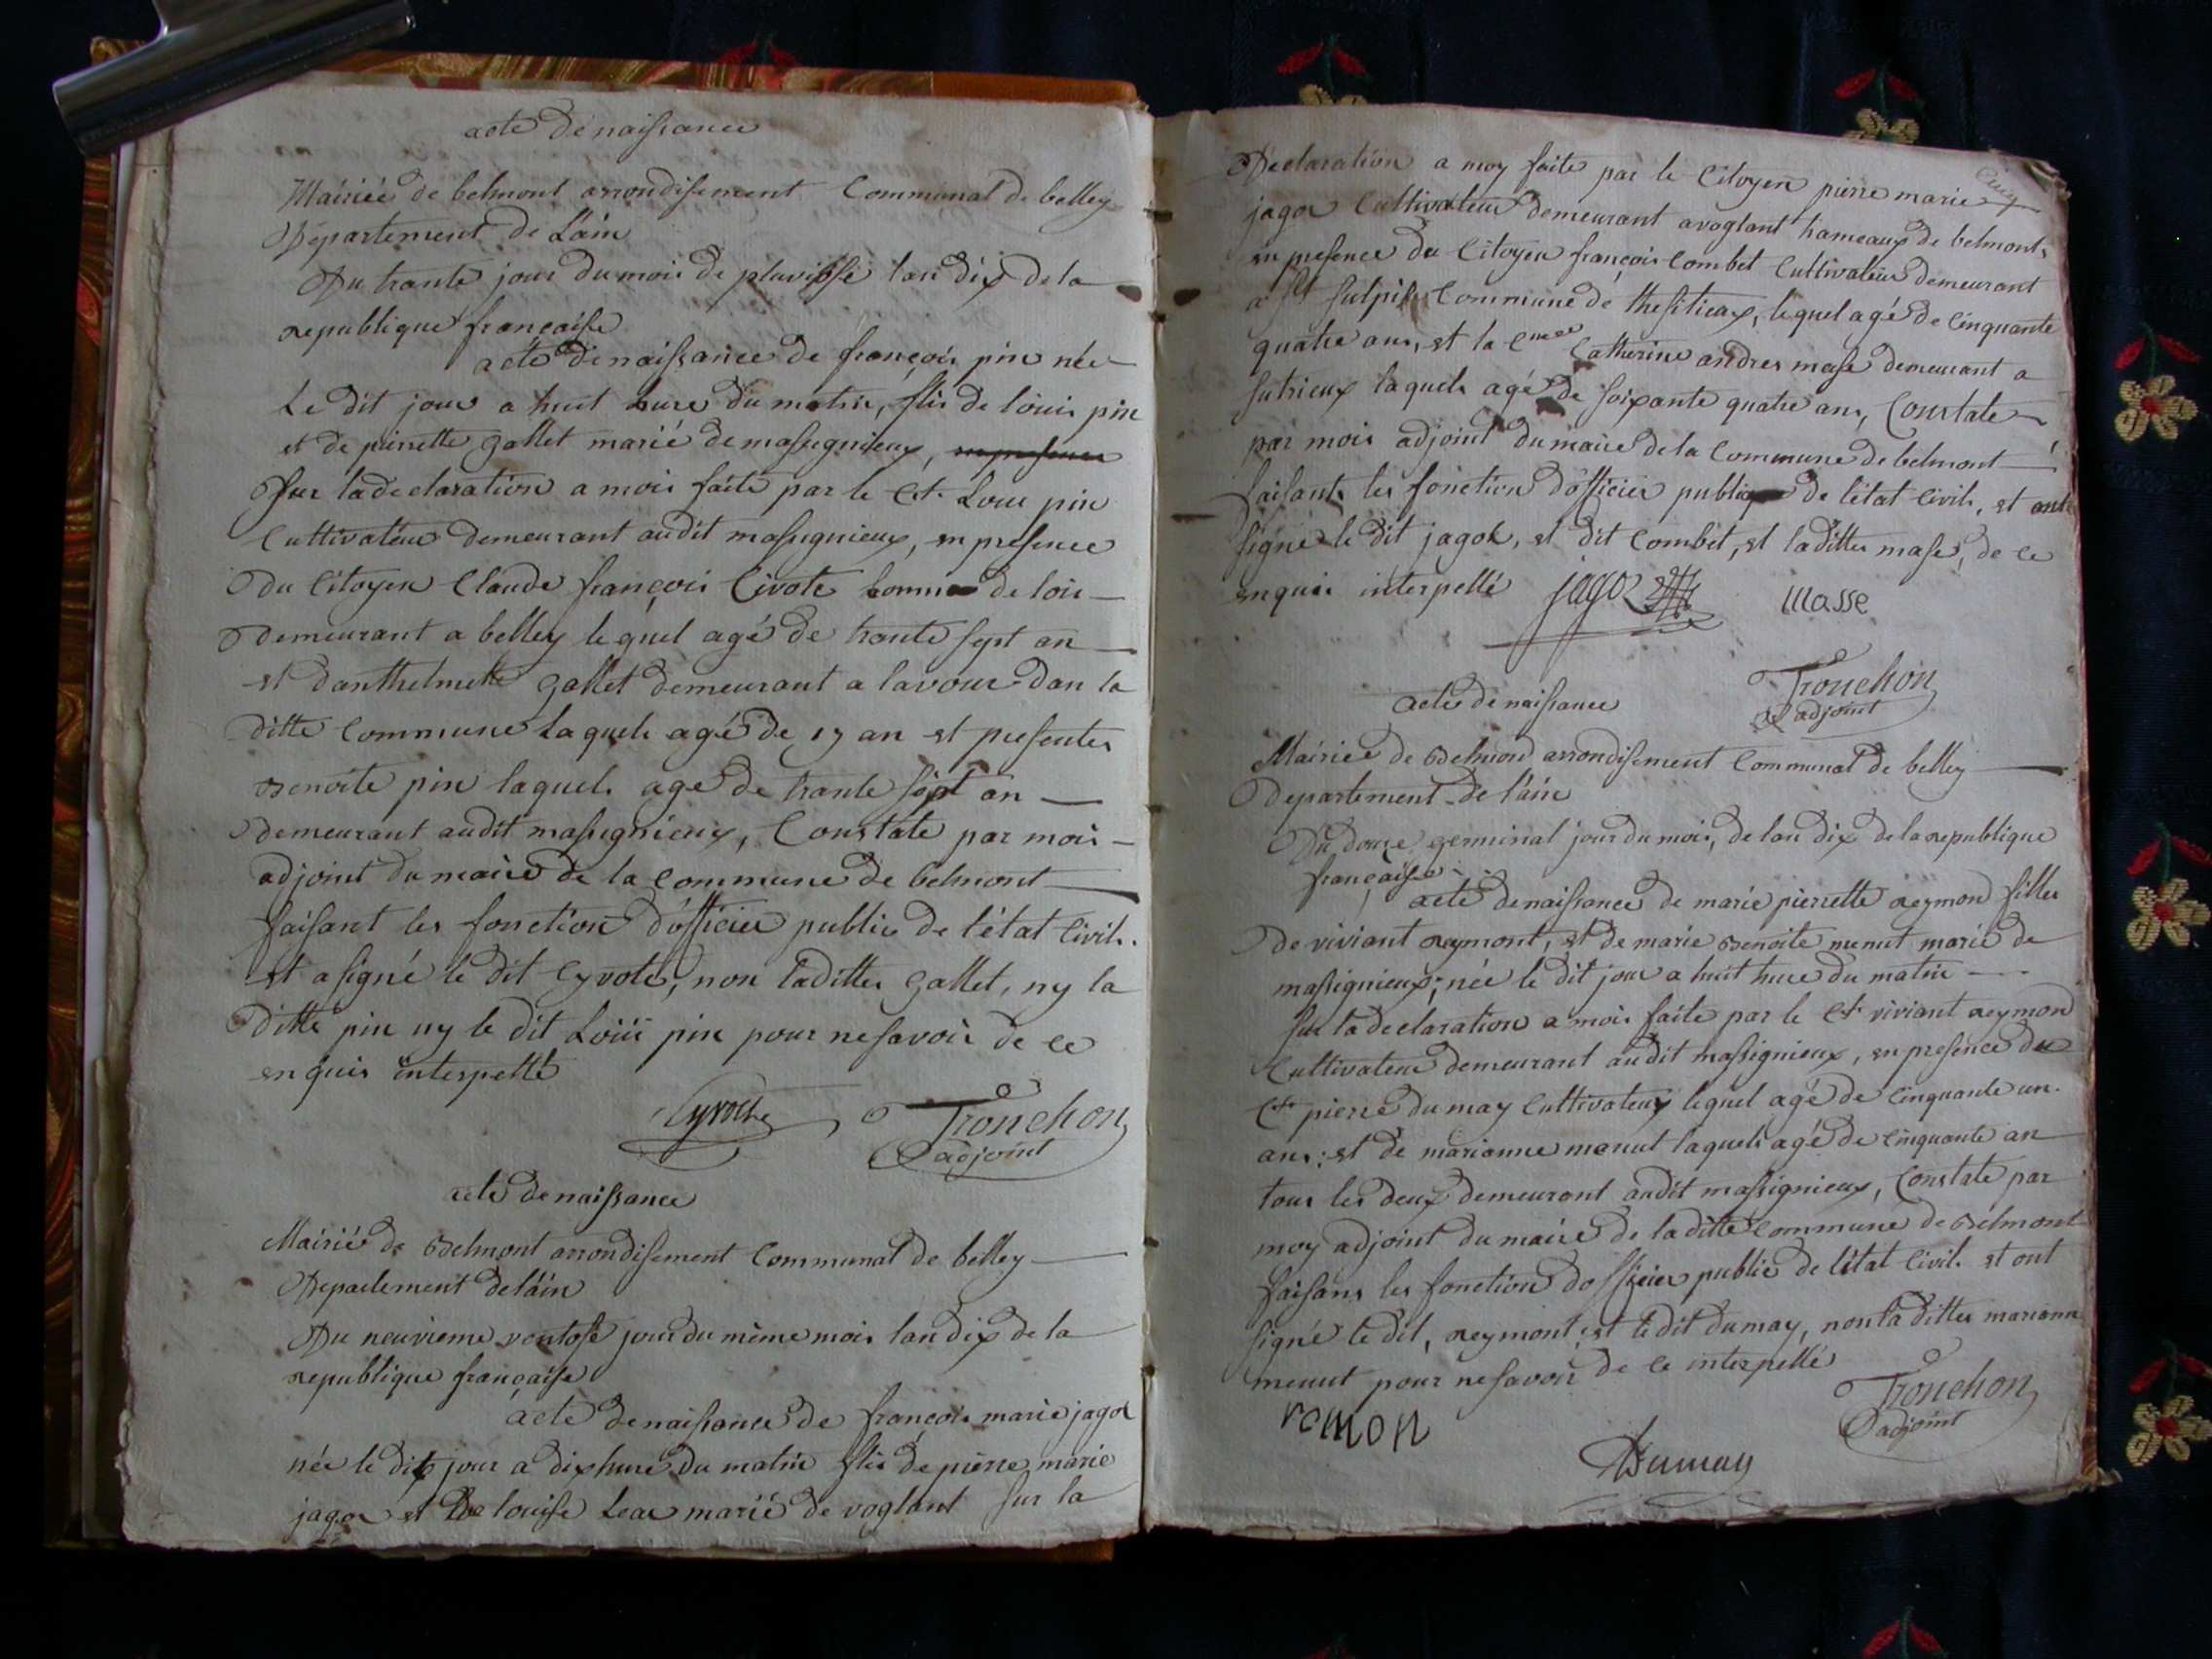 acte de naissance
Mairiée de belmont arrondissement Communal de belley
Département de L'ain
Du trante jour du mois de pluviosse l'an dix de la
republique française
acte de naissance de françois pin née
Le dit jour a huit hure du matin, flis de louis pin
et de pierrette gallet marié de massignieux, en presence
Sur la declaration a mois faite par le Ct. Loui pin
Cultivateur demeurant audit massignieux, en presence
du Citoyen Claude françois Civote homme de lois
demeurant a belley lequel agé de trante sept an
et d'anthelmette gallet demeurant a lavour dan la
ditte Commune laquele agé de 17 an et presentes
Benoite pin laquele age de trante sept an
demeurant audit massignieux, Constate par mois
adjoint du maire de la Commune de belmont
faisant les fonction d'officier public de l'état Civil.
et a signé le dit Cyvote, non laditte gallet, ny la
ditte pin ny le dit Loüi pin pour ne savoir de ce
enquis interpellé
Cyvoct Tronchon
adjoint
acte de naissance
Mairié de Belmont arrondissement Communal de belley
Departement de l'ain
Du neuvieme ventose jour du même mois l'an dix de la
republique française
acte de naissance de françois marie jagot
née le dit jour a dix hure du matin flis de pierre marie
jagot et de louise Lear marié de voglant sur la
Declaration a moy faite par le Citoyen pierre marie
jagot Cultivateur demeurant a voglant hameaux de belmont,
en presence du Citoyen françois Combet Cultivateur demeurant
a st Sulpis Commune de thesilieax, lequel agé de Cinquante
quatre ans, et la Catherine andres mase demeurant a
sutrieux laquele agé de soixante quatre ans, Constate
par mois adjoint du maire de la Commune de belmont
faisants les fonction d'officier public de l'état Civil, et ont
signé le dit jagot, et dit Combet, et laditte mase, de ce
enquis interpellé jagoz masse
Tronchon
adjoint
acte de naissance
Mairiee de Belmond arrondissement Communal de belley
Departement de l'ain
Du douze germinal jour du mois, de l'an dix de la republique
française
acte de naissance de marie pierrette reymond filles
de viviant reymont, et de marie Benoite menut marié de
massignieux, née le dit jour a huit hure du matin
sur la declaration a mois faite par le Ct. viviant reymond
Cultivateur demeurant audit massignieux, en presence du
Ct. pierre dumay Cultivateux lequel agé de Cinquante un.
ans; et de marianne menut laquele agé de Cinquante an
tous les deux demeurant audit massignieux, Constate par
moy adjoint du maire de laditte Commune de Belmont
faisans les fonction d'officier public de l'état Civil. et ont
signé le dit, reymont, et le dit dumay, non laditte mariann
menut pour ne savoir de ce interpellé
remon Tronchon
adjoint
Dumay